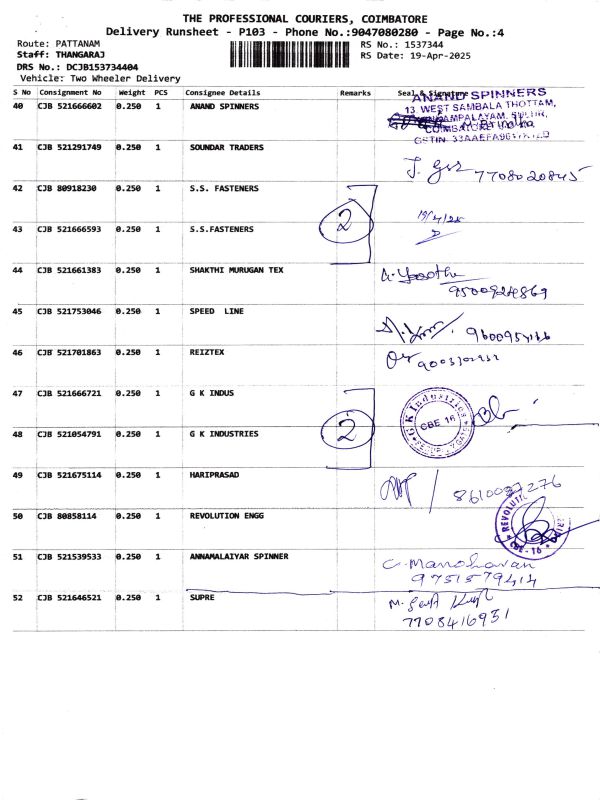 THE PROFESSIONAL COURIERS, COIMBATORE
Delivery Runsheet - P103 - Phone No.:9047080280 - Page No.:4
Route: PATTANAM RS No.: 1537344
Staff: THANGARAJ RS Date: 19-Apr-2025
DRS No.: DCJB153734404
Vehicle: Two Wheeler Delivery
S No Consignment No Weight PCS Consignee Details Remarks Seal & Signature
40 CJB 521666602 0.250 1 ANAND SPINNERS
ANAND SPINNERS
13, WEST SAMBALA THOTTAM,
COIMBATORE
41 CJB 521291749 0.250 1 SOUNDAR TRADERS
7708020845
42 CJB 80918230 0.250 1 S.S. FASTENERS
2
19/4/25
43 CJB 521666593 0.250 1 S.S.FASTENERS
44 CJB 521661383 0.250 1 SHAKTHI MURUGAN TEX
9500924869
45 CJB 521753046 0.250 1 SPEED LINE
46 CJB 521701863 0.250 1 REIZTEX
47 CJB 521666721 0.250 1 G K INDUS
2
G K Industries
CBE 16
SECURITY GATE
48 CJB 521054791 0.250 1 G K INDUSTRIES
49 CJB 521675114 0.250 1 HARIPRASAD
8610037276
50 CJB 80858114 0.250 1 REVOLUTION ENGG
CBE-16
51 CJB 521539533 0.250 1 ANNAMALAIYAR SPINNER
C. Manoharan
9751579414
52 CJB 521646521 0.250 1 SUPRE
7708416931